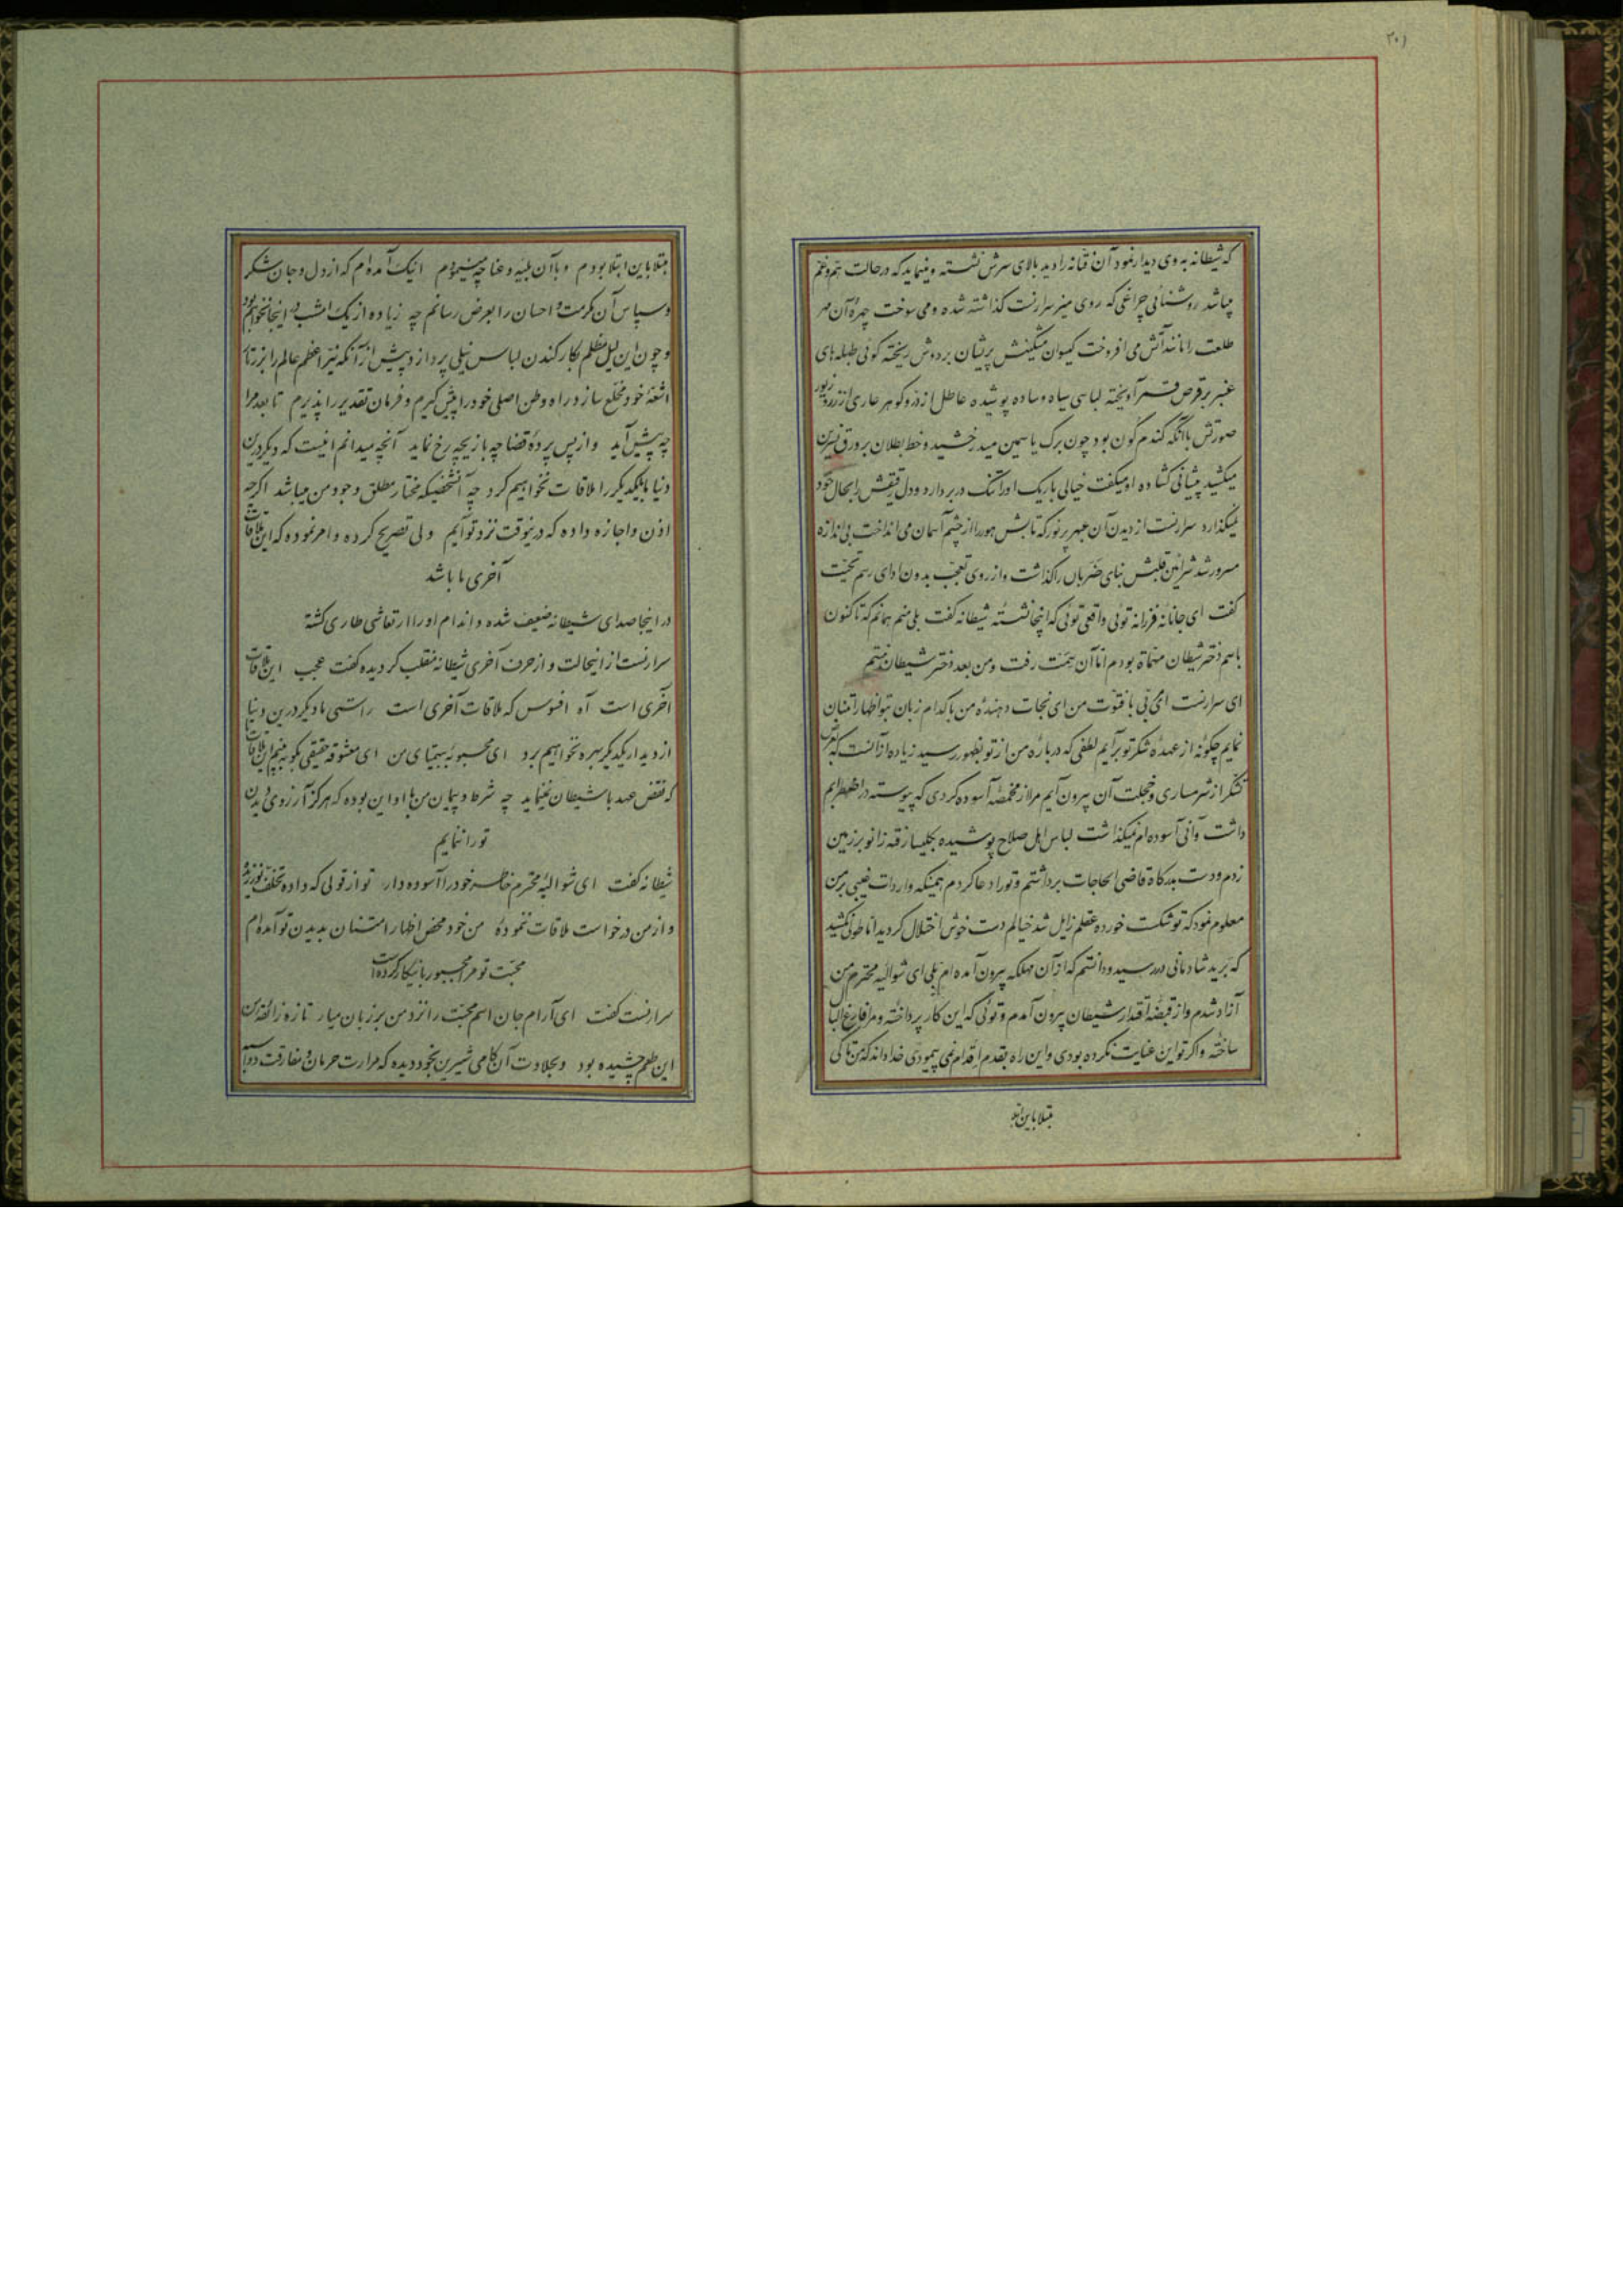 ۲۰۱
که شیطانه به وی دیدار نمود آن فتانه را دید بالای سرش نشسته و مینماید که در حالت هم و غم
میباشد روشنائی چراغی که روی میز سرارنست گذاشته شده و می سوخت چهرهٔ آن مه
طلعت را مانند آتش می افروخت گیسوان مشکینش پریشان بر دوش ریخته گوئی طبله های
عنبر بر قرص قمر آویخته لباسی سیاه و ساده پوشیده عاطل از در و گوهر عاری از زر و زیور
صورتش باآنکه گندم گون بود چون برک یاسمین میدرخشید و خط بطلان بر ورق نسرین
میکشید پیشانی گشاده او میگفت خیالی باریک او را تنک در بر دارد و دل رقیقش را بحال خود
نمیگذارد سرارنست از دیدن آن چهر پر نور که تابش هور را از چشم آسمان می انداخت بی اندازه
مسرور شد شرائین قلبش بنای ضربان را گذاشت و از روی تعجب بدون ادای رسم تحیت
گفت ای جانانه فرزانه توئی واقعی توئی که اینجا نشستهٔ شیطانه گفت بلی منم همانم که تا کنون
باسم دختر شیطان مسماة بودم اما آن سمت رفت و من بعد دختر شیطان نیستم
ای سرارنست ای نجی با فتوت من ای نجات دهندهٔ من با کدام زبان بتو اظهار امتنان
نمایم چگونه از عهدهٔ شکر تو برآیم لطفی که دربارهٔ من از تو بظهور رسید زیاده از آنست که بتوان
تشکر از شرمساری و خجلت آن بیرون آیم مرا از مخمصهٔ آسوده کردی که پیوسته در اضطرابم
داشت و آنی آسوده ام نمیگذاشت لباس اهل صلاح پوشیده بکلیسا رفته زانو بر زمین
زدم و دست بدرگاه قاضی الحاجات برداشتم و تو را دعا کردم همینکه واردات غیبی بر من
معلوم نمود که تو شکست خورده عقلم زایل شد خیالم دست خوش اختلال گردید اما طولی نکشید
که برید شادمانی در رسید و دانستم که از آن مهلکه بیرون آمده ام بلی ای شوالیه محترم من
آزاد شدم و از قبضهٔ اقتدار شیطان بیرون آمدم و توئی که این کار پرداخته و مرا فارغ البال
ساخته و اگر تو این عنایت نکرده بودی و این راه بقدم اقدام نمی پیمودی خدا داند که من تا کی
مبتلا باین ابتلا
مبتلا باین ابتلا بودم و با آن بلیه و عنا چه مینمودم اینک آمده ام که از دل و جان شکر
و سپاس آن کرمت و احسان را بعرض رسانم چه زیاده از یک امشب در اینجا نخواهم بود
و چون این لیل مظلم بکار کندن لباس نیلی پردازد و پیش از آنکه نیر اعظم عالم را بزرتار
اشعهٔ خود مخلع سازد راه وطن اصلی خود را پیش گیرم و فرمان تقدیر را پذیرم تا بعد مرا
چه پیش آید و از پس پردهٔ قضا چه بازیچه رخ نماید آنچه میدانم اینست که دیگر در این
دنیا ما یکدیگر را ملاقات نخواهیم کرد چه آنشخصیکه مختار مطلق وجود من میباشد اگرچه
اذن و اجازه داده که در اینوقت نزد تو آیم ولی تصریح کرده و امر نموده که این ملاقات
آخری ما باشد
در اینجا صدای شیطانه ضعیف شده و اندام او را ارتعاشی طاری گشته
سرارنست از اینحالت و از حرف آخری شیطانه منقلب گردیده گفت عجب این ملاقات
آخری است آه افسوس که ملاقات آخری است راستی ما دیگر در این دنیا
از دیدار یکدیگر بهره نخواهیم برد ای محبوبهٔ بیهمتای من ای معشوقه حقیقی بگو ببینم این ملاقات
که نقض عهد با شیطان نمینماید چه شرط و پیمان من با او این بوده که هرگز آرزوی دیدن
تو را ننمایم
شیطانه گفت ای شوالیهٔ محترم خاطر خود را آسوده دار تو از قولی که داده تخلف نورزیدهٔ
و از من درخواست ملاقات ننمودهٔ من خود محض اظهار امتنان بدیدن تو آمده ام
محبت تو مرا مجبور باینکار کرده است
سرارنست گفت ای آرام جان اسم محبت را نزد من بر زبان میار تازه ذائقه من
این طعم چشیده بود و بحلاوت آن کامی شیرین بخود دیده که مرارت حرمان و مفارقت دوباره